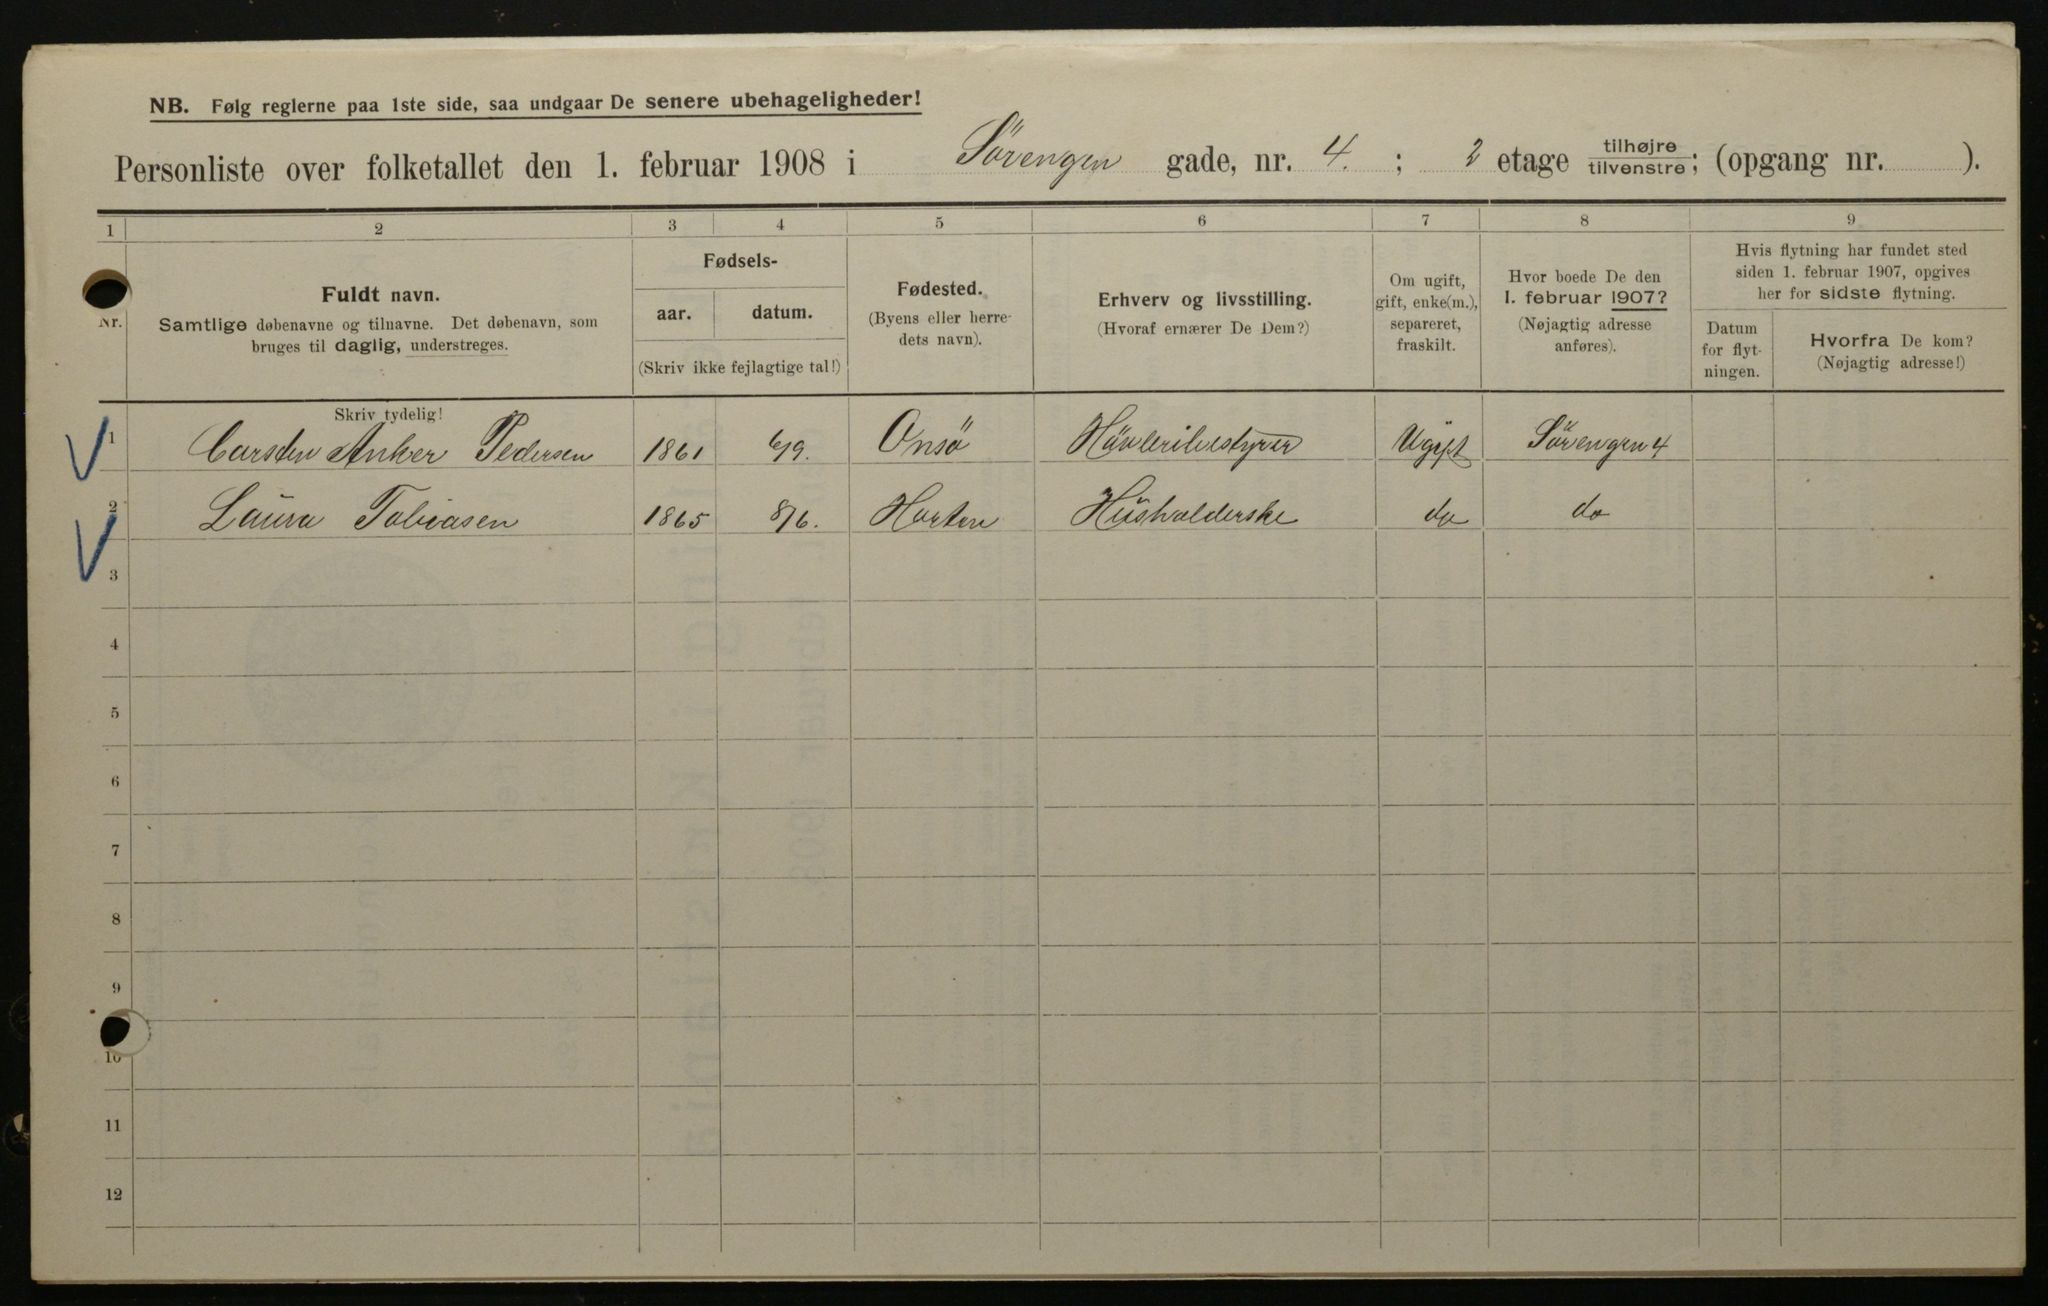 NB. Følg reglerne paa 1ste side, saa undgaar De senere ubehageligheder!
Personliste over folketallet den 1. februar 1908 i Sörengen gade, nr. 4. ; 2 etage tilhøjre/tilvenstre; (opgang nr. ).
1 2 3 4 5 6 7 8 9
Nr.
Fuldt navn.
Samtlige døbenavne og tilnavne. Det døbenavn, som
bruges til daglig, understreges.
Fødsels-
aar. datum.
(Skriv ikke fejlagtige tal!)
Fødested.
(Byens eller herre-
dets navn).
Erhverv og livsstilling.
(Hvoraf ernærer De Dem?)
Om ugift,
gift, enke(m.),
separeret,
fraskilt.
Hvor boede De den
1. februar 1907?
(Nøjagtig adresse
anføres).
Hvis flytning har fundet sted
siden 1. februar 1907, opgives
her for sidste flytning.
Datum
for flyt-
ningen.
Hvorfra De kom?
(Nøjagtig adresse!)
Skriv tydelig!
1 Carsten Anker Pedersen 1861 6/9. Onsö Hövleribestyrer Ugift Sörengen 4
2 Laura Tobiasen 1865 8/6. Horten Husholderske do do
3
4
5
6
7
8
9
10
11
12